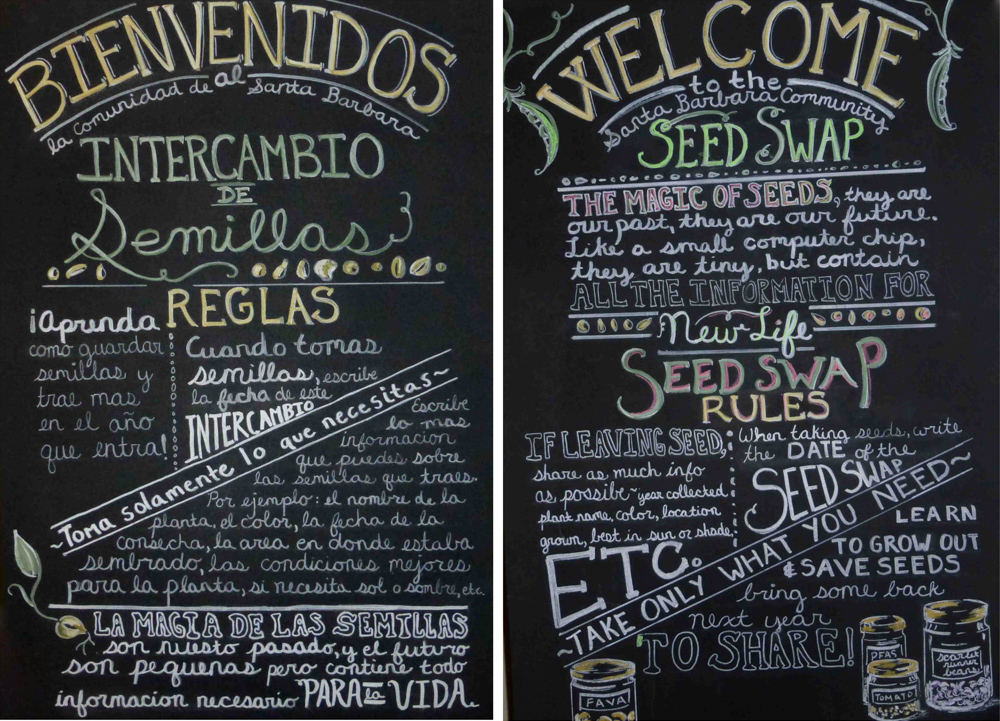 BIENVENIDOS
al
la comunidad de Santa Barbara
INTERCAMBIO
DE
Semillas
REGLAS
¡Aprenda
como guardar
semillas y
trae mas
en el año
que entra!
Cuando tomas
semillas, escribe
la fecha de este
INTERCAMBIO
~Toma solamente lo que necesitas~
Escribe
lo mas
informacion
que puedes sobre
las semillas que traes.
Por ejemplo: el nombre de la
planta, el color, la fecha de la
consecha, la area en donde estaba
sembrado, las condiciones mejores
para la planta, si necesita sol o sombre, etc.
LA MAGIA DE LAS SEMILLAS
son nuesto pasado, y el futuro
son pequenas pero contiene todo
informacion necesario PARA la VIDA.
WELCOME
to the
Santa Barbara Community
SEED SWAP
THE MAGIC OF SEEDS, they are
our past, they are our future.
Like a small computer chip,
they are tiney, but contain
ALL THE INFORMATION FOR
New Life
SEED SWAP
RULES
IF LEAVING SEED,
share as much info
as possibe ~ year collected
plant name, color, location
grown, best in sun or shade,
ETC.
When taking seeds, write
the DATE of the
SEED SWAP
~TAKE ONLY WHAT YOU NEED~
LEARN
TO GROW OUT
& SAVE SEEDS
bring some back
next year
TO SHARE!
FAVA
PEAS
TOMATO
scarlet
runner
beans